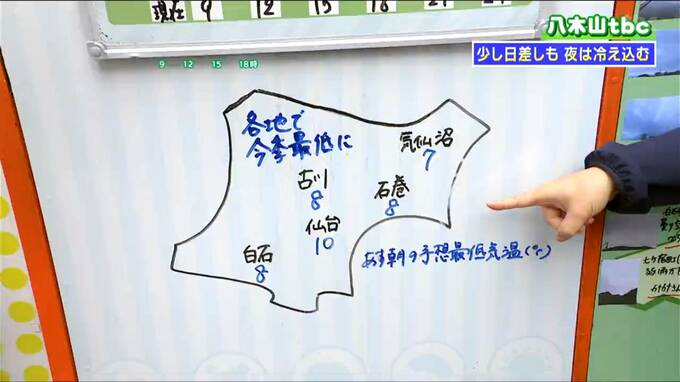 現在 9 12 15 18
八木山tbc
少し日差しも 夜は冷え込む
9 12 15 18時
各地で
今季最低に
気仙沼
7
古川
8
石巻
8
仙台
10
白石
8
あす朝の予想最低気温(℃)